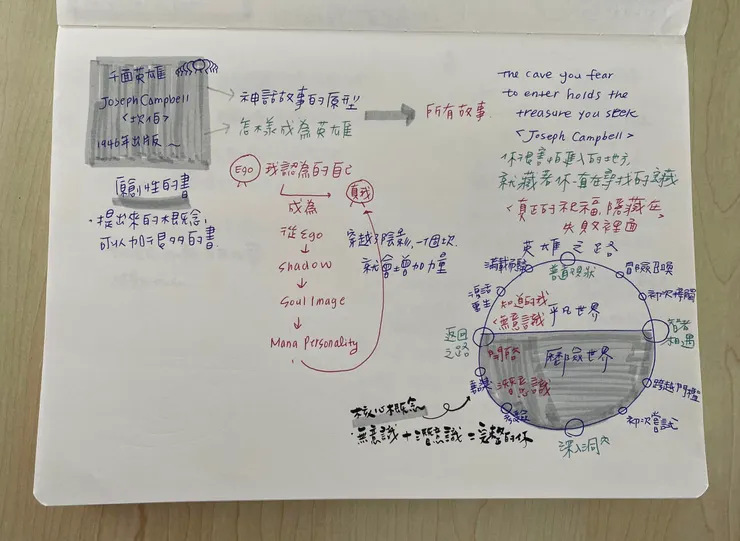 千面英雄
Joseph Campbell
<坎伯>
1946年出版~
神話故事的原型
怎樣成為英雄
所有故事
原創性的書
·提出來的概念,
可以加很多的書
Ego 我認為的自己
真我
成為
從Ego
Shadow
Soul Image
Mana Personality
穿越了陰影,一個坎,
就會增加力量
The cave you fear
to enter holds the
treasure you seek
<Joseph Campbell>
你很害怕進入的地方
就藏著你一直在尋找的寶藏
<真正的祝福,隱藏在
失敗裡面
英雄之路
普通現狀
冒險召喚
初次
智者
相遇
跨越門檻
初次嘗試
深入洞穴
返回
之路
復活
重生
知道的我
<無意識
平凡世界
歷險世界
潛意識
核心概念
·無意識+潛意識=完整的你